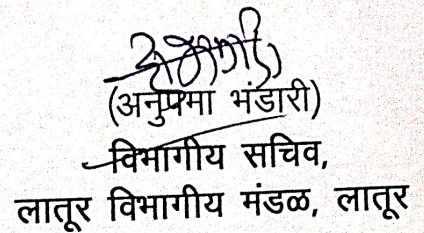 (अनुप्रमा भंडारी)
विभागीय सचिव,
लातूर विभागीय मंडळ, लातूर